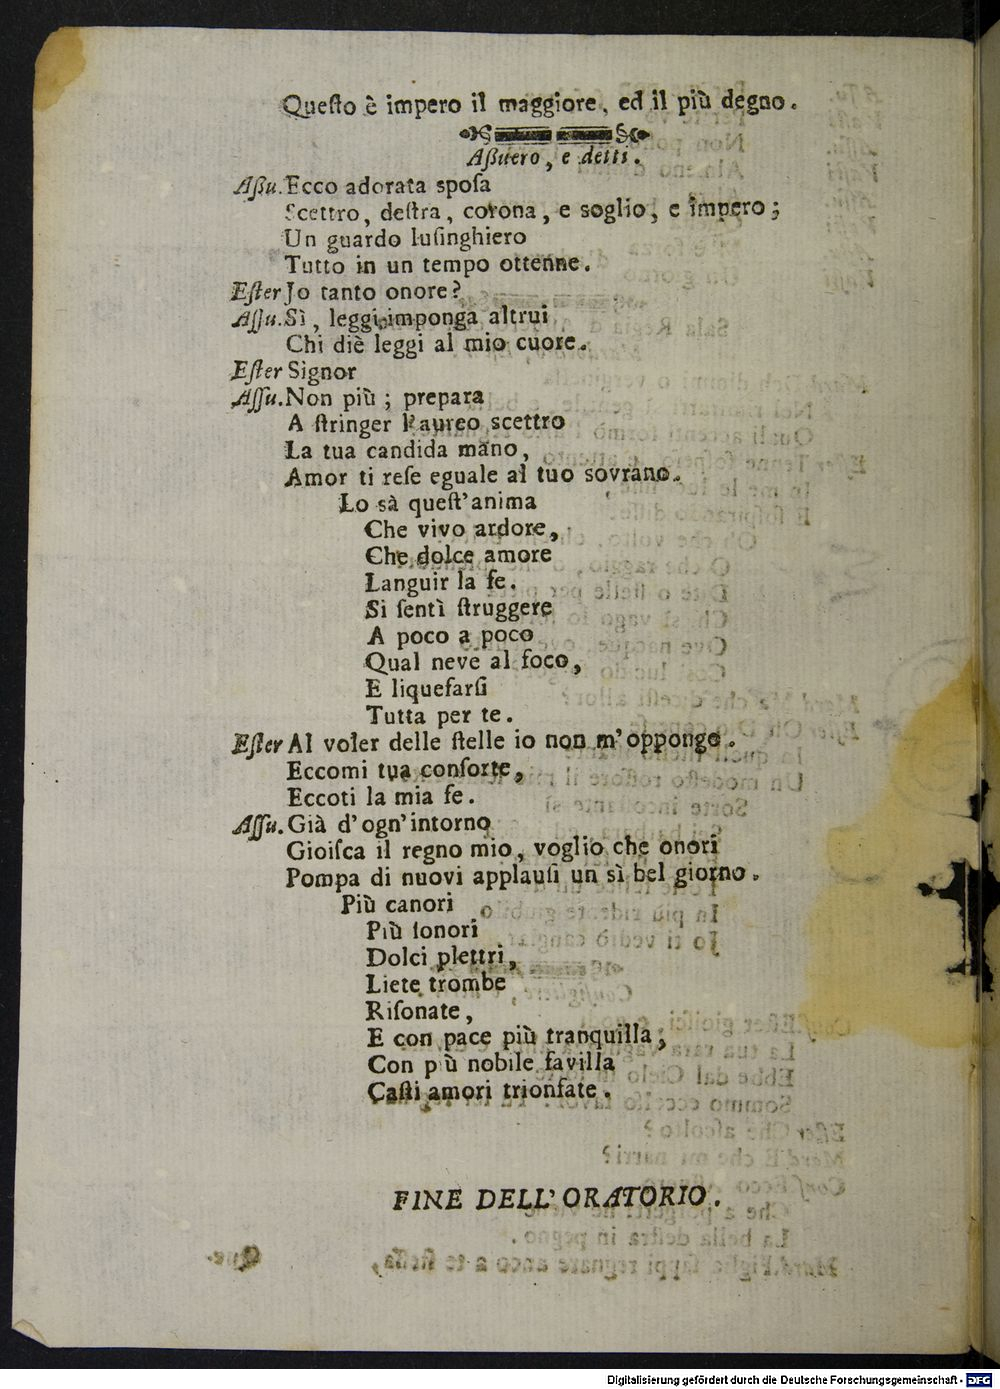 Queſto è impero il maggiore, ed il più degno.
Aßuero, e detti.
Aßu. Ecco adorata spoſa
Scettro, deſtra, corona, e soglio, e impero;
Un guardo luſinghiero
Tutto in un tempo ottenne.
Eſter Jo tanto onore?
Aſſu. Sì, leggi imponga altrui
Chi diè leggi al mio cuore.
Eſter Signor
Aſſu. Non più; prepara
A ſtringer l'aureo scettro
La tua candida mano,
Amor ti reſe eguale al tuo sovrano.
Lo sà queſt'anima
Che vivo ardore,
Che dolce amore
Languir la fe.
Si ſentì ſtruggere
A poco a poco
Qual neve al foco,
E liquefarſi
Tutta per te.
Eſter Al voler delle ſtelle io non m'oppongo.
Eccomi tua conſorte,
Eccoti la mia fe.
Aſſu. Già d'ogn'intorno
Gioiſca il regno mio, voglio che onori
Pompa di nuovi applauſi un sì bel giorno.
Più canori
Più ſonori
Dolci plettri,
Liete trombe
Riſonate,
E con pace più tranquilla,
Con p ù nobile favilla
Caſti amori trionfate.
FINE DELL'ORATORIO.
Digitalisierung gefördert durch die Deutsche Forschungsgemeinschaft - DFG